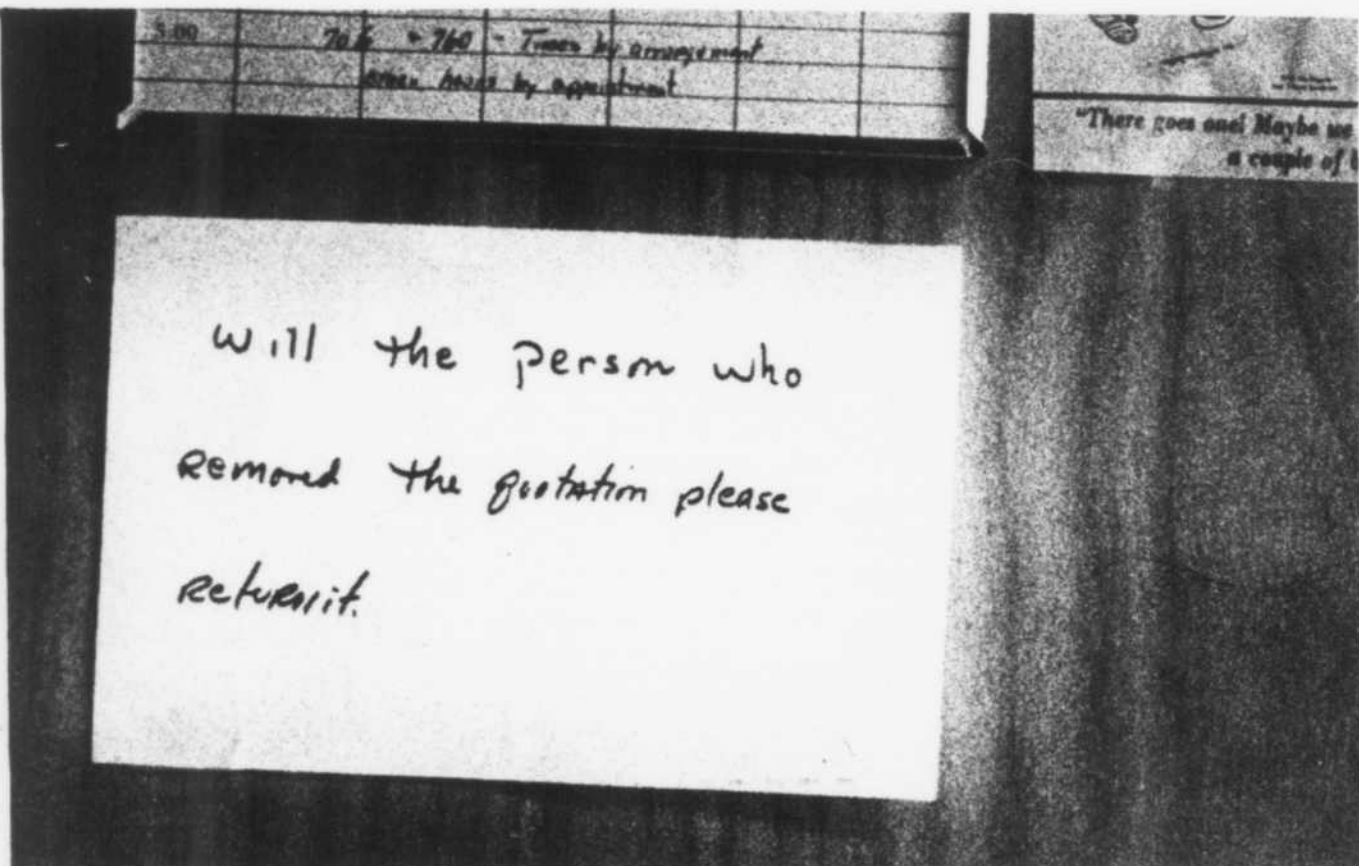 5:00 706 + 760 - Times by arrangement
hours by appointment
"There goes one! Maybe we
a couple of
Will the person who
removed the quotation please
return it.